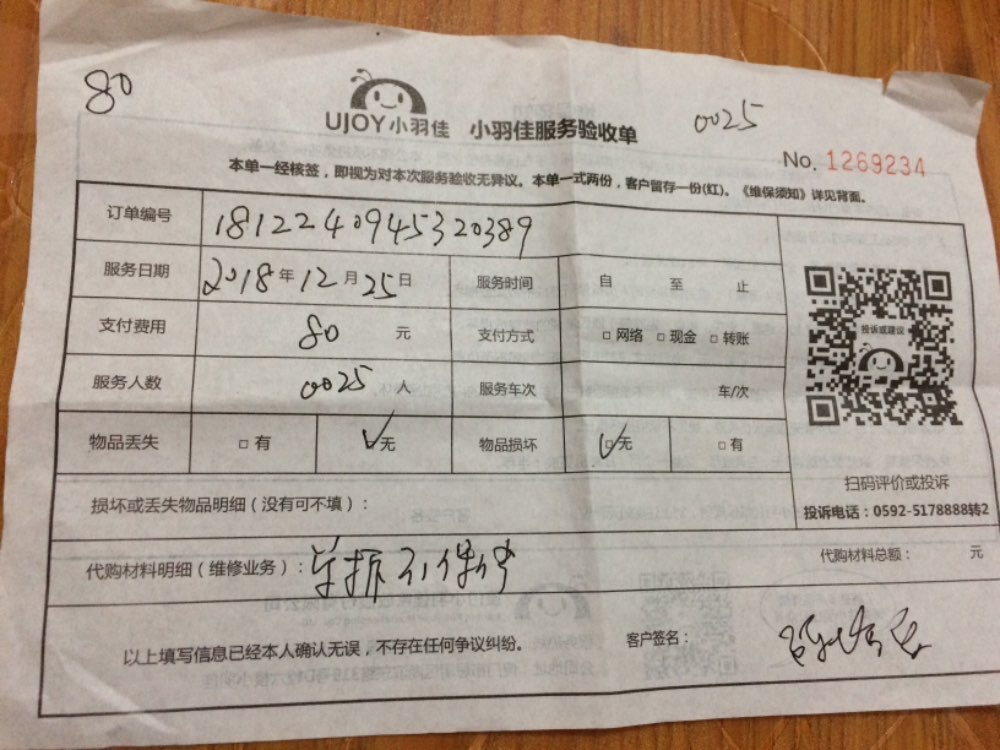 80
UJOY小羽佳 小羽佳服务验收单
0025
No. 1269234
本单一经核签，即视为对本次服务验收无异议。本单一式两份，客户留存一份(红)。《维保须知》详见背面。
订单编号 1812240945320389
服务日期 2018年12月25日 服务时间 自 至 止
支付费用 80 元 支付方式 □网络 □现金 □转账
服务人数 0025 人 服务车次 车/次
物品丢失 □有 ☑无 物品损坏 ☑无 □有
投诉或建议
扫码评价或投诉
投诉电话：0592-5178888转2
损坏或丢失物品明细（没有可不填）：
代购材料明细（维修业务）：单拆
代购材料总额： 元
以上填写信息已经本人确认无误，不存在任何争议纠纷。 客户签名：